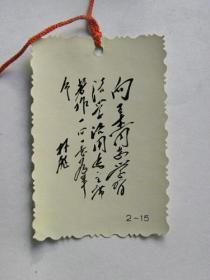 向王杰同志学习
活学活用毛主席
著作 一心一意为革
命
林彪
2-15